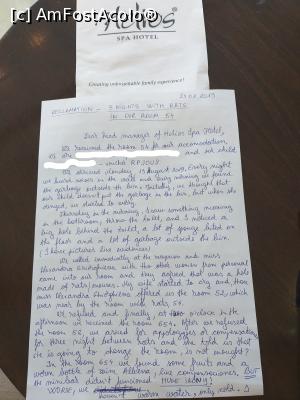 [c] AmFostAcolo®
Helios
SPA HOTEL
Creating unforgettable family experience!
RECLAMATION - 3 NIGHTS WITH RATS
IN OUR ROOM 54
Dear head manager of Helios Spa Hotel,
We received the room 54 for our accommodation,
We are and child
We arrived Monday, 19 August 2019. Every night
we heard noises in the and every morning we found
the garbage outside the bin. Initially, we thought that
our child doesn't put the garbage in the bin, but when she
denyed, we started to worry.
Thursday in the morning, I saw something moving
in the bathroom, throw the toilet, and I noticed a
big hole behind the toilet, a lot of sponge bited on
the floor and a lot of garbage outside the bin.
(I have pictures like evidences)
We called immediately at the reception and miss
Alexandra with two other women from personal
came into our room and they agreed that was a hole
made of rats/mouses. My wife started to cry and then
miss Alexandra offered us the room 52, which
was near by the room with rats 54.
We refused and finally, at o'clock in the
afternoon we received the room 654. After we refused
the room 52, we asked for apologizes or compensation
for three night between rats and she told us that
she is going to change the room, is not enough?
In the room 654 we found some fruits and a
bottle of wine like compensations. BUT,
the minibar didn't functioned. HUGE IRONY!
WORSE, we
doesn't warm water, only cold.